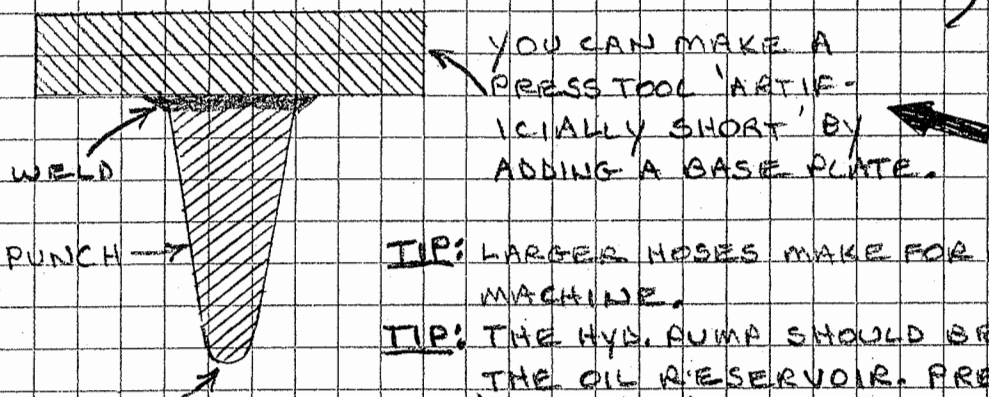 YOU CAN MAKE A
PRESS TOOL 'ARTIF-
ICIALLY SHORT' BY
ADDING A BASE PLATE.
WELD
PUNCH
TIP: LARGER HOSES MAKE FOR
MACHINE.
TIP: THE HYD. PUMP SHOULD BE
THE OIL RESERVOIR. PRE